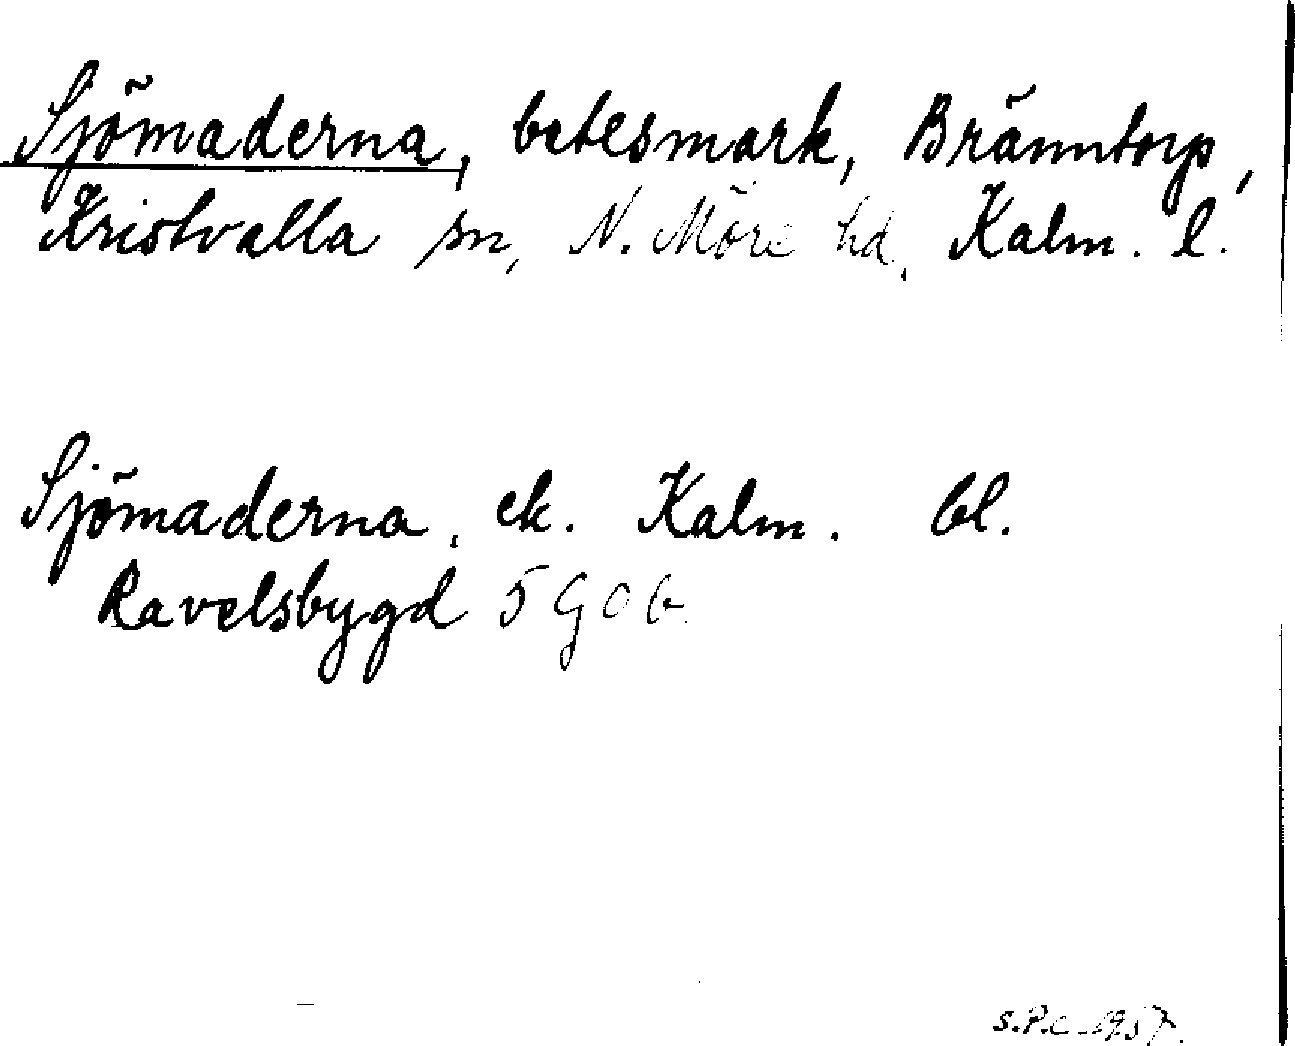 Sjömaderna, betesmark, Bränntorp,
Kristvalla sn, N. Möre hd, Kalm. l.
Sjömaderna, ek. Kalm. bl.
Ravelsbygd 5 G 0 b
S.P.C. 1957.